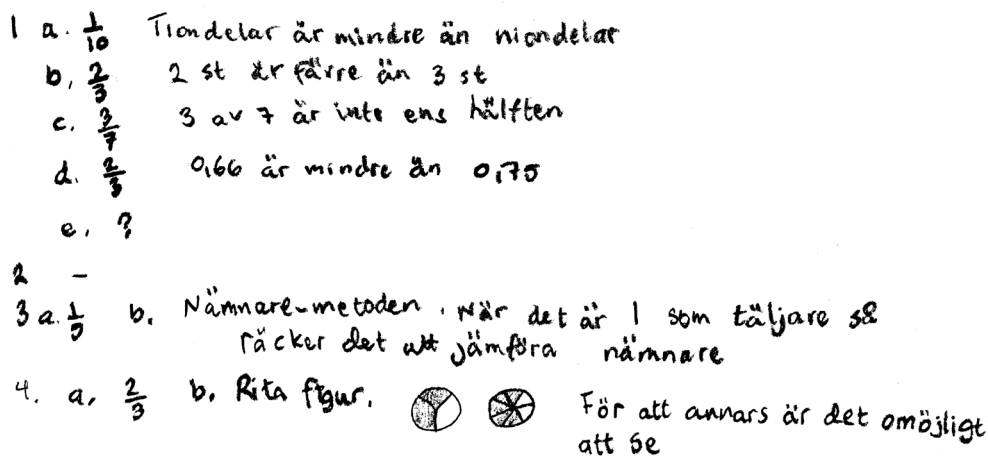 1 a. 1/10 Tiondelar är mindre än niondelar
b, 2/3 2 st är färre än 3 st
c. 3/7 3 av 7 är inte ens hälften
d. 2/3 0,66 är mindre än 0,75
e. ?
2 –
3 a. 1/5 b. Nämnare-metoden. När det är 1 som täljare så
räcker det att jämföra nämnare
4. a. 2/3 b. Rita figur. För att annars är det omöjligt
att se